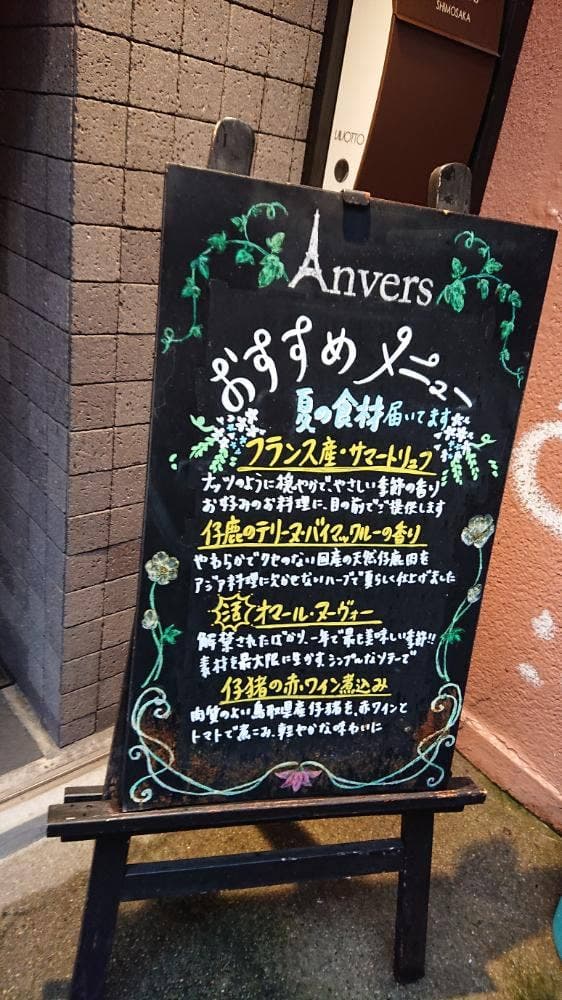 SHIMOSAKA
LILIOTTO
Anvers
おすすめメニュー
夏の食材届いてます
フランス産・サマートリュフ
ナッツのように穏やかで、やさしい季節の香り
お好みのお料理に、目の前でご提供します
仔鹿のテリーヌ・バイマックルーの香り
やわらかでクセのない国産の天然仔鹿肉を
アジア料理に欠かせないハーブで夏らしく仕上げました
活 オマール・ヌーヴォー
解禁されたばかり、一年で最も美味しい季節!!
素材を最大限に生かすシンプルなソテーで
仔猪の赤・ワイン煮込み
肉質のよい鳥取県産仔猪を、赤ワインと
トマトで煮こみ、軽やかな味わいに